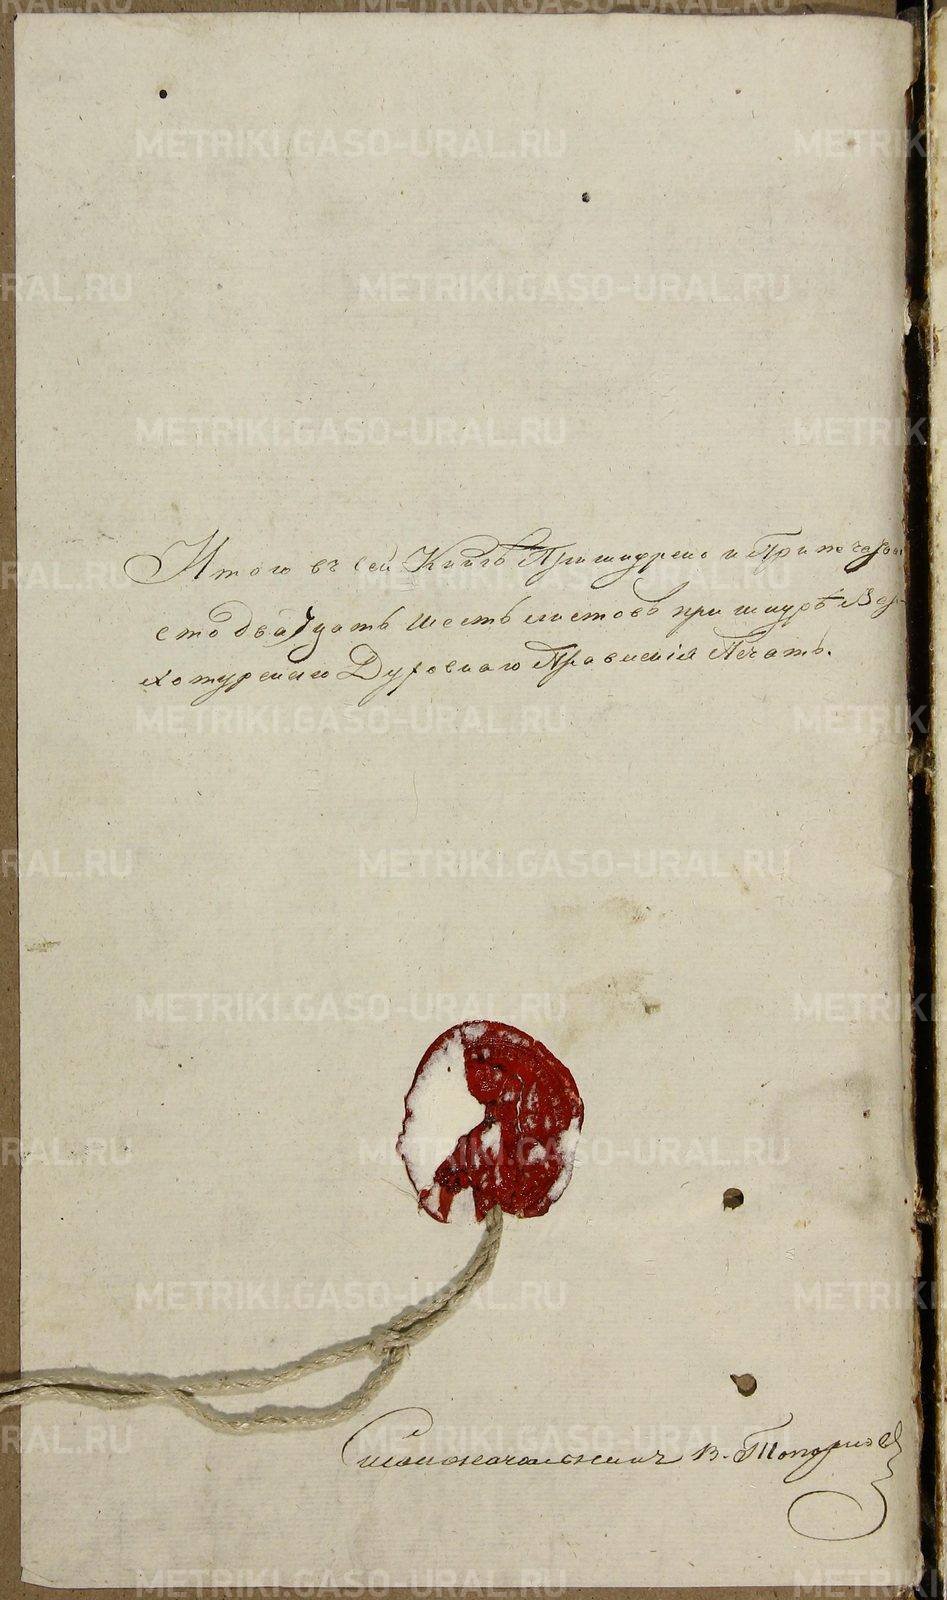 Итого въ сей Книгѣ Пришнурено и Припечатан
сто двадцать шесть листовъ при шнурѣ Вер-
хотурскаго Духовнаго Правленія Печать.
Столоначальникъ В. Топорковъ
METRIKI.GASO-URAL.RU